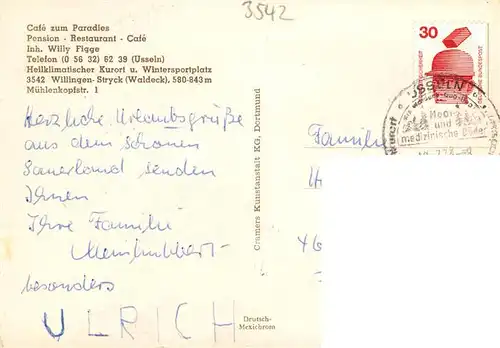 3542
Café zum Paradies
Pension - Restaurant - Café
Inh. Willy Figge
Telefon (0 56 32) 62 39 (Usseln)
Heilklimatischer Kurort u. Wintersportplatz
3542 Willingen-Stryck (Waldeck), 580-843 m
Mühlenkopfstr. 1
Herzliche Urlaubsgrüße
aus dem schönen
Sauerland senden
Ihnen
Ihre Familie
besonders
ULRICH
Cramers Kunstanstalt KG, Dortmund
Deutsch-
Mexichrom
30
USSELN
Moor-
und
medizinische Bäder
Familie
H
46